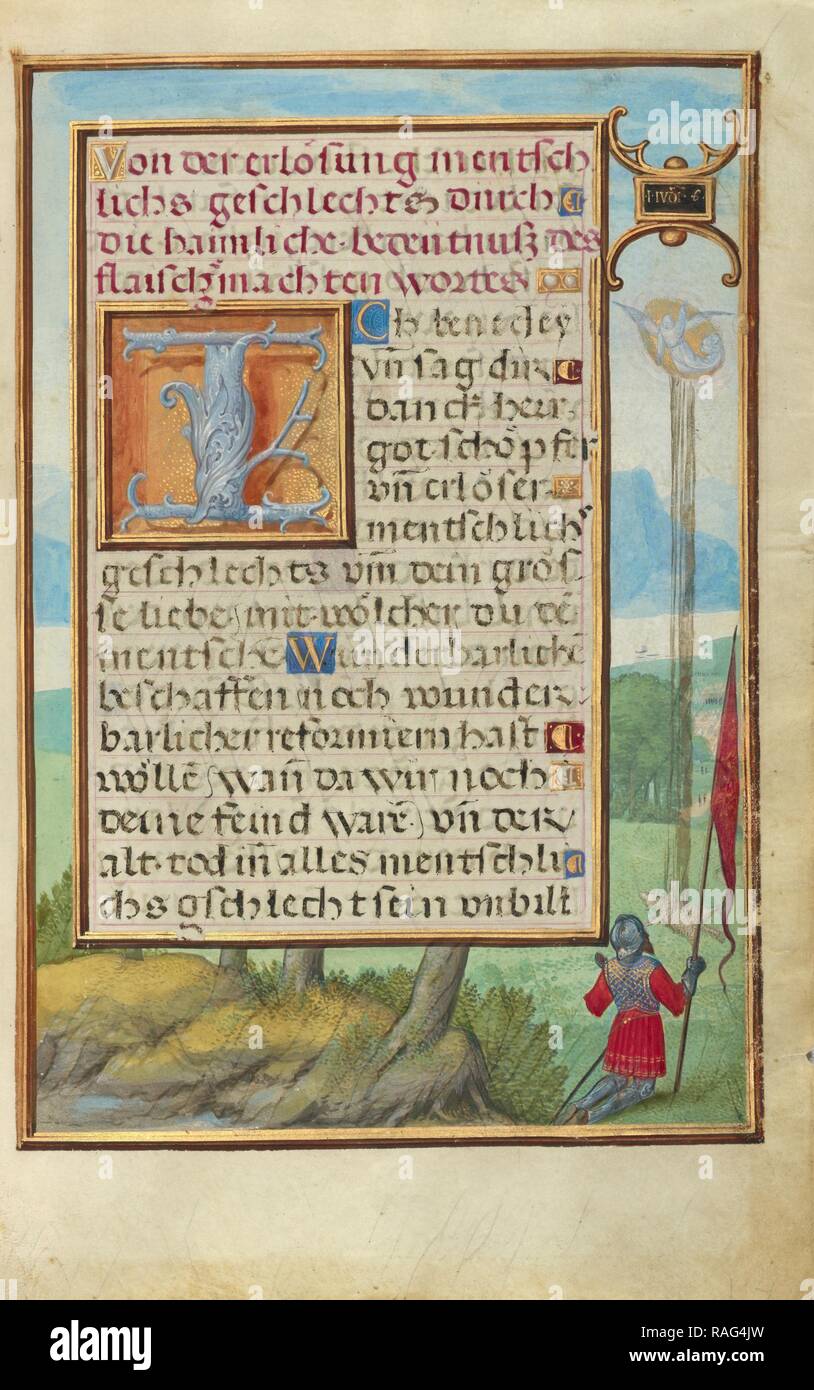 Von der erlösung mentsch
lichs geschlechts durch
die haimliche bedeutnuß des
flaischgmachten wortes
I Ch benedey
vn̄ sag dir
danck herr
got schöpfer
vn̄ erlöser
mentschlichs
geschlechts vm̄ dein grös
se liebe / mit wölcher du dē
mentschē Wunderbarlichē
beschaffen noch wunder
barlicher reformiern hast
wöllē / wan̄ da wir noch
deine feind warē) vn̄ der
alt tod in̄ alles mentschli
chs gschlecht sein vnbill
alamy
Image ID: RAG4JW
www.alamy.com